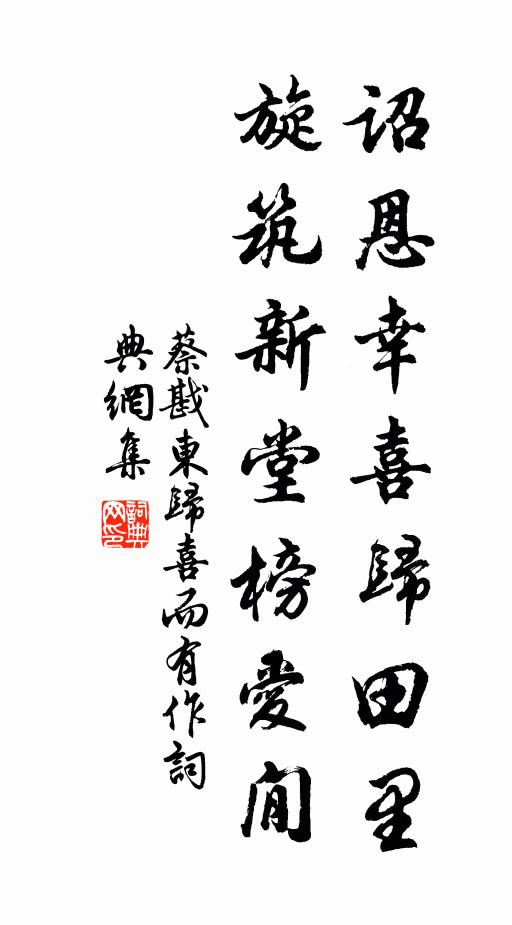 詔恩幸喜歸田里
旋筑新堂榜愛闲
蔡戡東歸喜而有作詞
典網集
詞典
网印